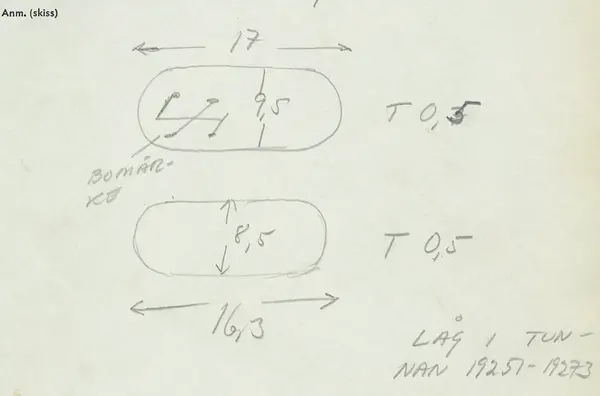 Anm. (skiss)
17
9,5
T 0,5
BOMÄR-
KE
8,5
T 0,5
16,3
LÅG I TUN-
NAN 19251-19273